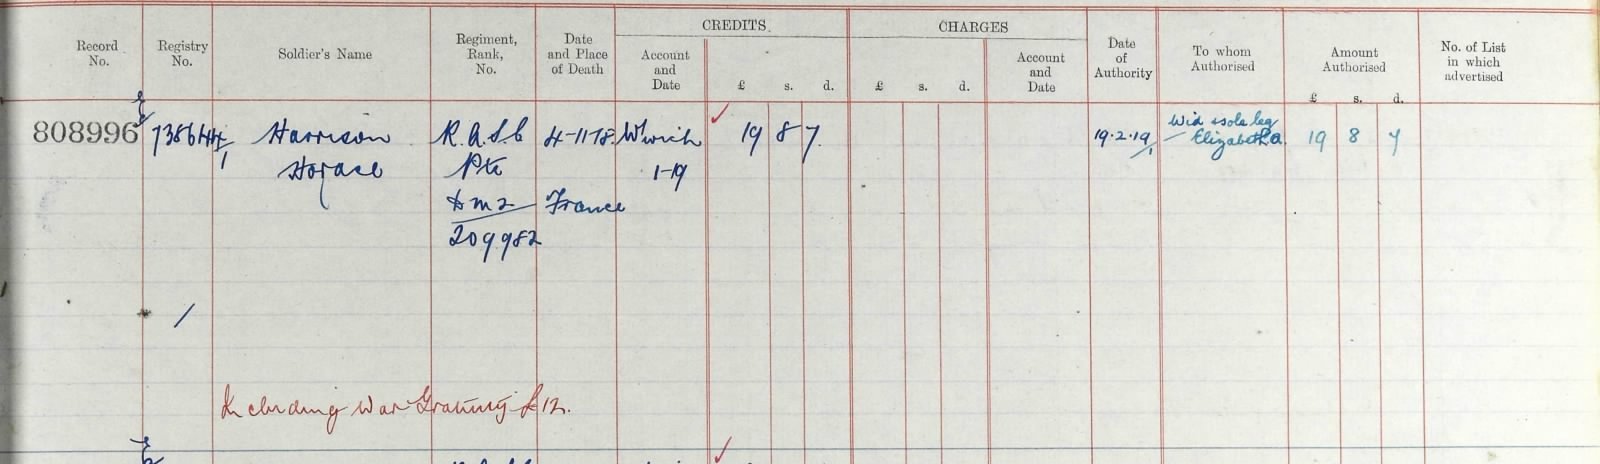 CREDITS.
CHARGES
Record No.
Registry No.
Soldier's Name
Regiment, Rank, No.
Date and Place of Death
Account and Date
£ s. d.
£ s. d.
Account and Date
Date of Authority
To whom Authorised
Amount Authorised
£ s. d.
No. of List in which advertised
808996
Harrison
Horace
R.A.S.C
Pte
DM2
209982
4-11-18
France
W'wich
1-19
19 8 7
19.2.19
Wid & sole leg
Elizabeth A.
19 8 7
Including War Gratuity £12.